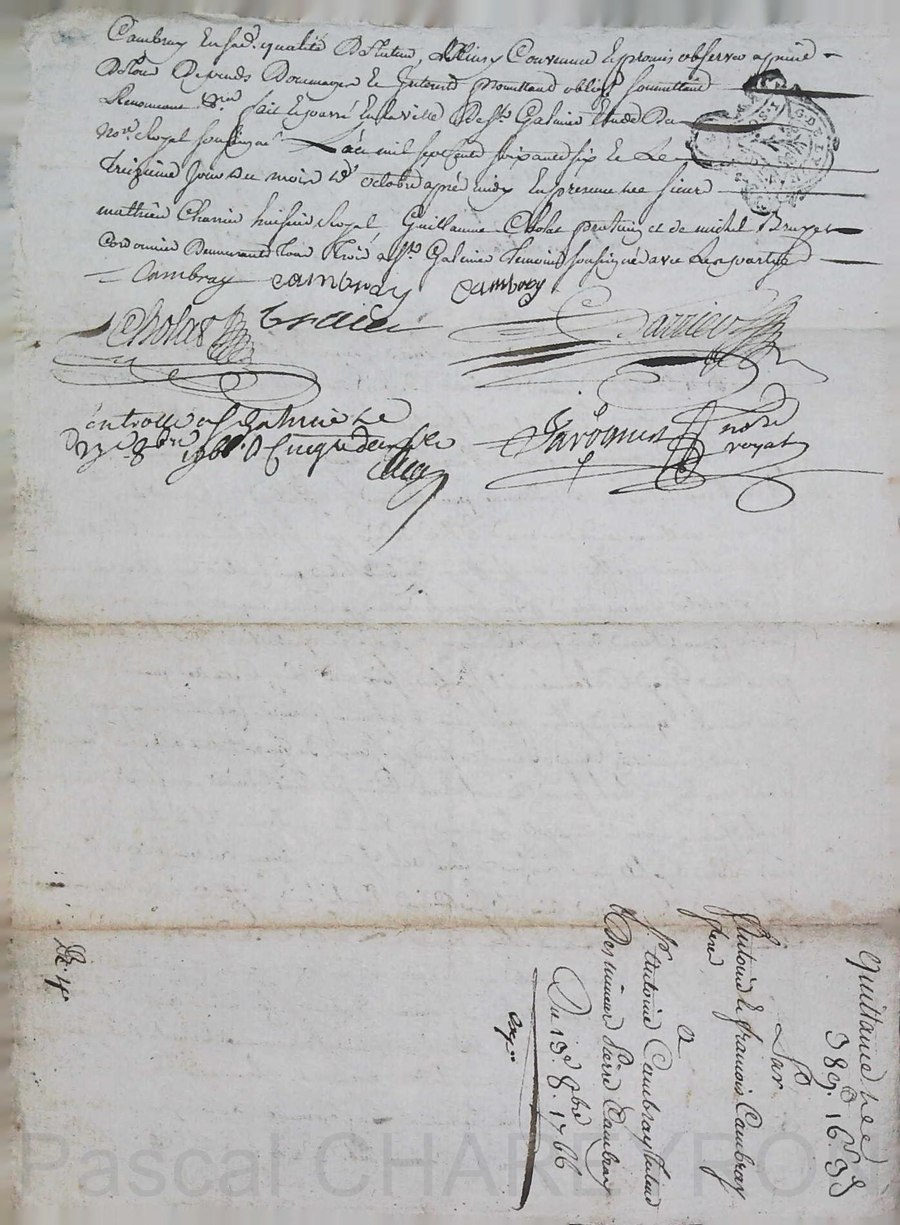 Cambray En sad. qualité De tuteur, Convenu Et promis observer a peine
De tous Depends Dommages Et Interests promettand obligt. soumettand
Renonceant &ra fait Et passé En la ville De St. Galmier Etude Du
Nore. Royal soussigné L'an mil sept cents soixante six Et Le
treizieme jour du mois d'octobre apres midy En presence des sieur
mathieu Charrin huissier Royal, Guillaume Cholat et de michel Bruyat
Cordonnier Demeurants tous trois a St. Galmier temoins soussignés avec Les parties
Cambray Cambray Cambray
Cholat
Controllé a St Galmier Le
8bre 1766
notre
royal
Quittance de
389# 16s 9d
Par
Antoine Et francois Cambray
freres
a
Sr. Antoine Cambray tuteur
Des mineurs Pierre Cambray
Du 13e 8bre 1766
Pascal CHAREYRON